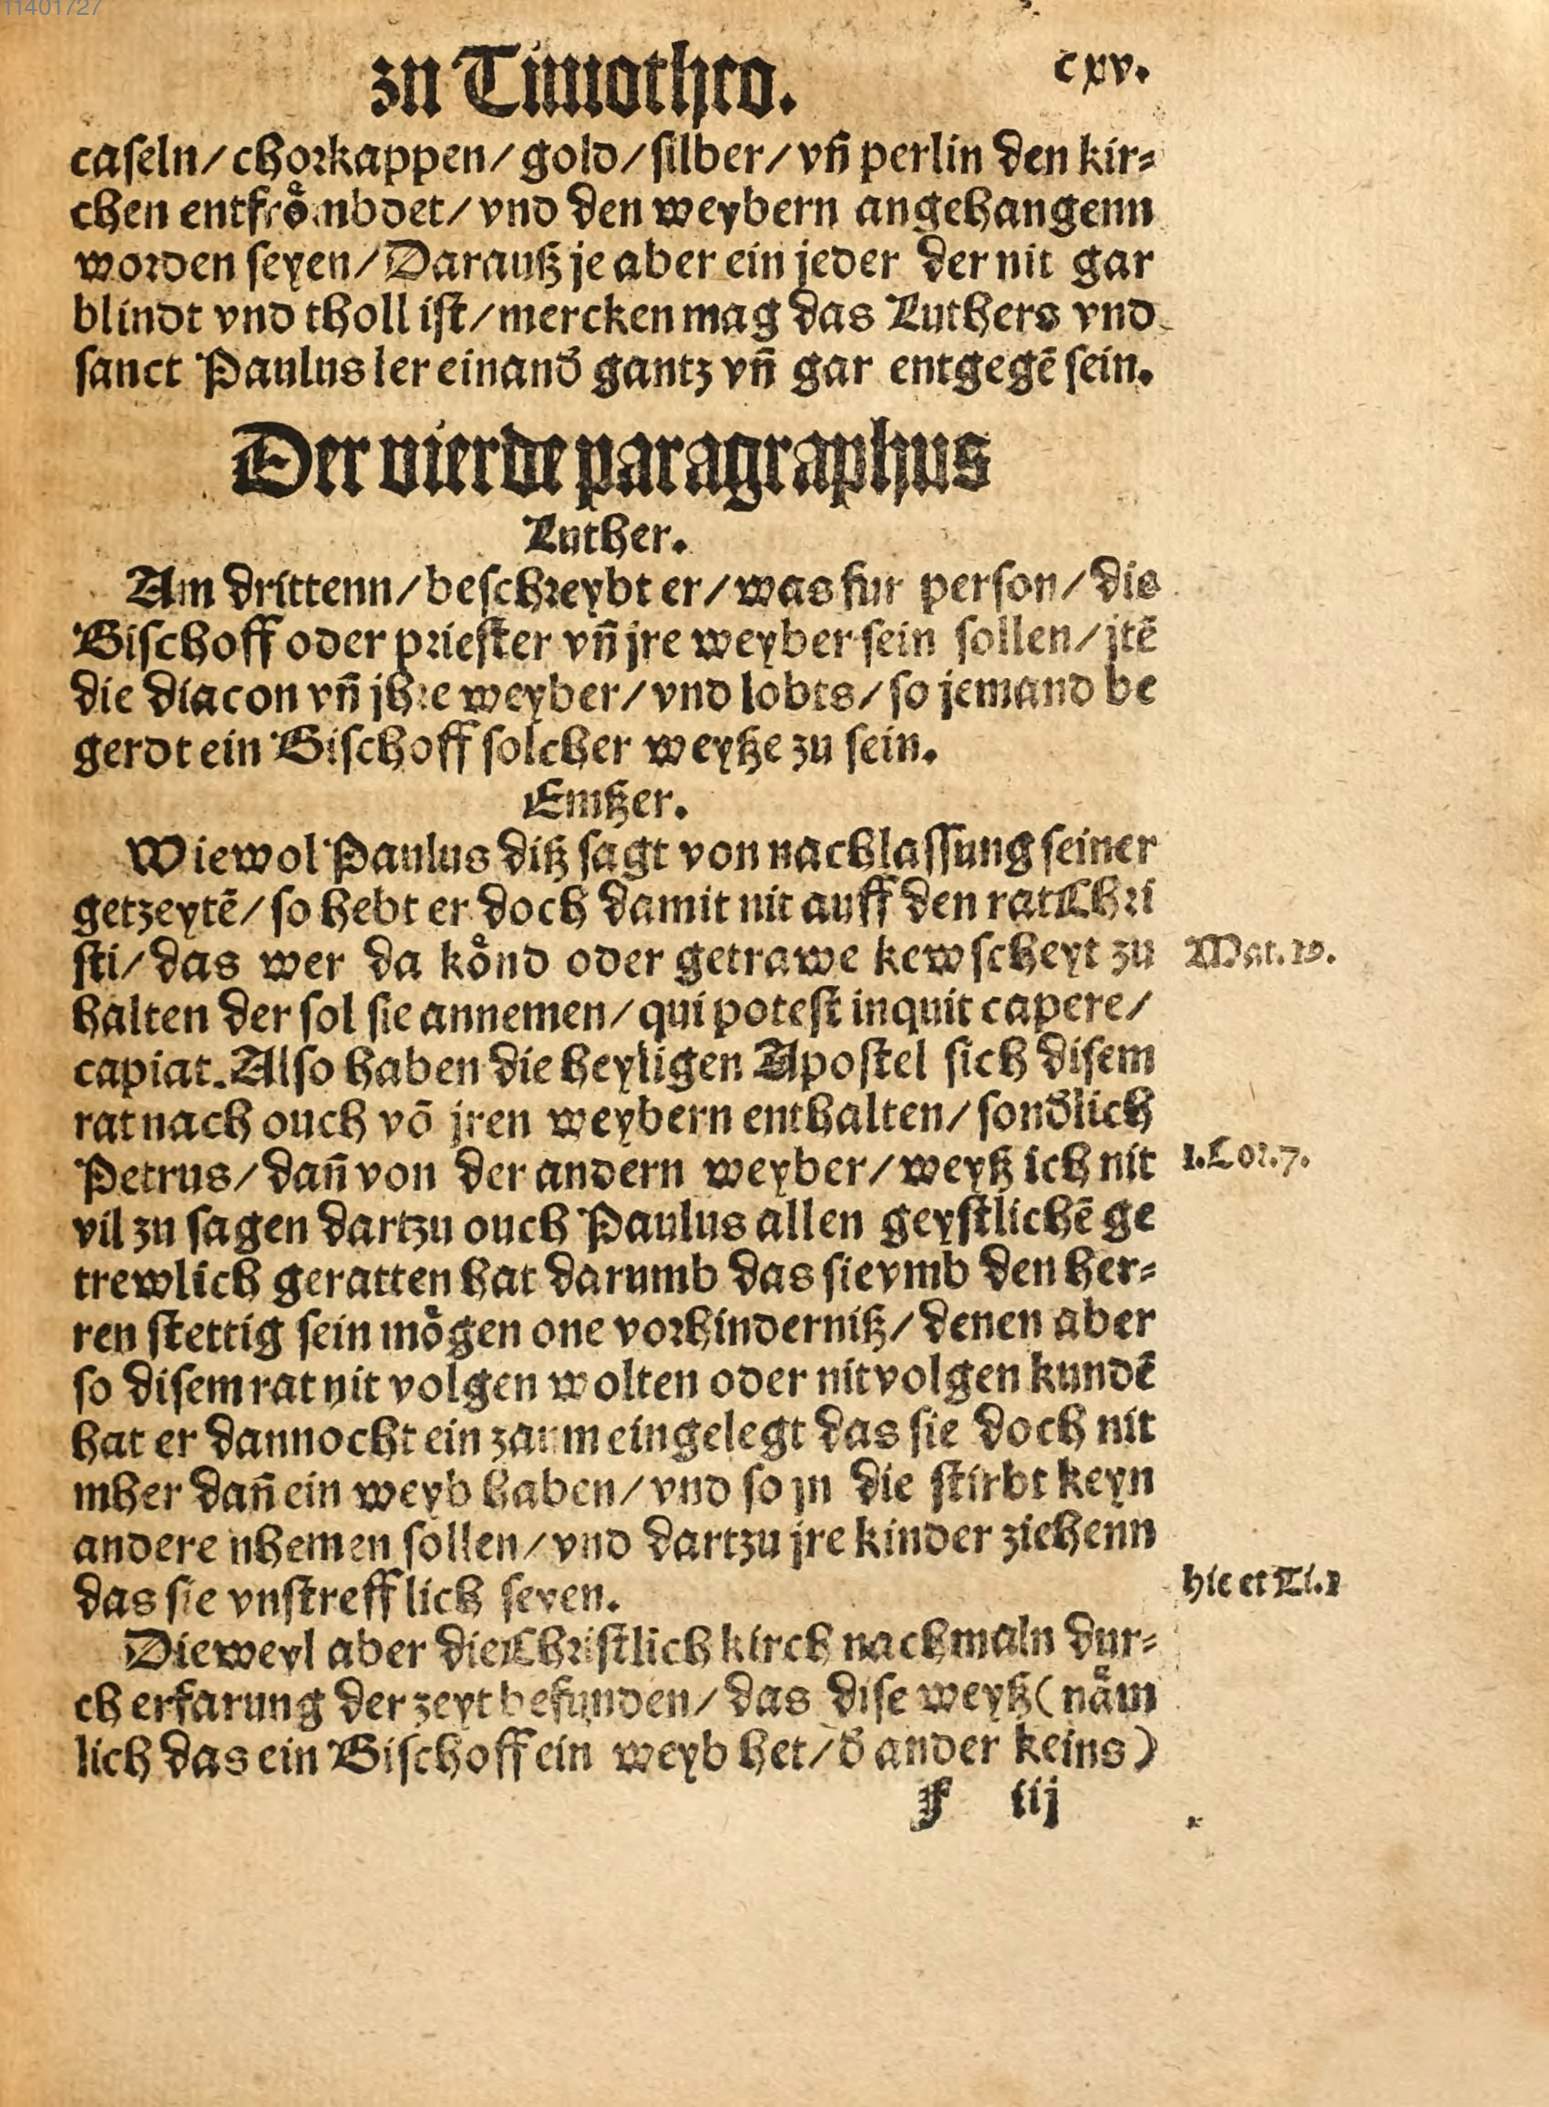 11401727
zu Timotheo.
cxv.
caseln/chorkappen/gold/silber/vn̄ perlin den kir⸗
chen entfroͤmbdet/vnd den weybern angehangenn
worden seyen/Darauß je aber ein jeder der nit gar
blindt vnd tholl ist/mercken mag das Luthers vnd
sanct Paulus ler einand̕ gantz vn̄ gar entgegē sein.
Der vierde paragraphus
Luther.
Am drittenn/beschreybt er/was fur person/die
Bischoff oder priester vn̄ jre weyber sein sollen/jtē
die diacon vn̄ jhre weyber/vnd lobts/so jemand be
gerdt ein Bischoff solcher weyße zu sein.
Emßer.
Wiewol Paulus diß sagt von nachlassung seiner
getzeytē/so hebt er doch damit nit auff den rat Chri
sti/das wer da koͤnd oder getrawe kewscheyt zu
Mat. 19.
halten der sol sie annemen/qui potest inquit capere/
capiat. Also haben die heyligen Apostel sich disem
rat nach ouch vō jren weybern enthalten/sond̕lich
Petrus/dan̄ von der andern weyber/weyß ich nit
1.Cor.7.
vil zu sagen dartzu ouch Paulus allen geystlichē ge
trewlich geratten hat darumb das sie vmb den her⸗
ren stettig sein moͤgen one vorhinderniß/denen aber
so disem rat nit volgen wolten oder nit volgen kundē
hat er dannocht ein zaum eingelegt das sie doch nit
mher dan̄ ein weyb haben/vnd so jn die stirbt keyn
andere nhemen sollen/vnd dartzu jre kinder ziehenn
das sie vnstrefflich seyen.
hic et Ti.1
Dieweyl aber die Christlich kirch nachmaln dur⸗
ch erfarung der zeyt befunden/das dise weyß (naͤm
lich das ein Bischoff ein weyb het/d̕ ander keins)
f iij